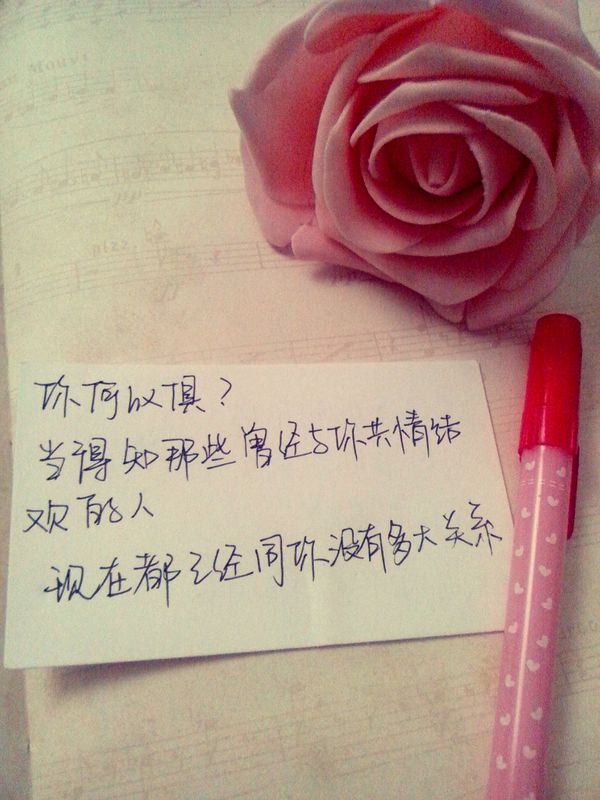 你何以惧？
当得知那些曾经与你共情结
欢的人
现在都已经同你没有多大关系